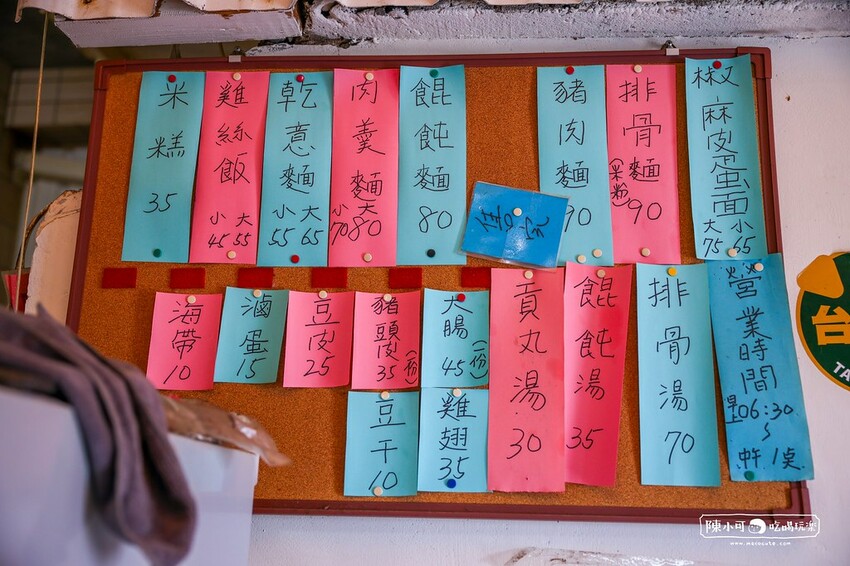 米糕 35
雞絲飯 小45 大55
乾意麵 小55 大65
肉羹麵 小70 大80
餛飩麵 80
豬肉麵 90
排骨麵(粿粉) 90
椒麻皮蛋面 大75 小65
海帶 10
滷蛋 15
豆皮 25
豬頭皮 35(份)
大腸 45(一份)
豆干 10
雞翅 35
貢丸湯 30
餛飩湯 35
排骨湯 70
營業時間 早上06:30~中午1点
台
TA
陳小可 吃喝玩樂
www.morocute.com